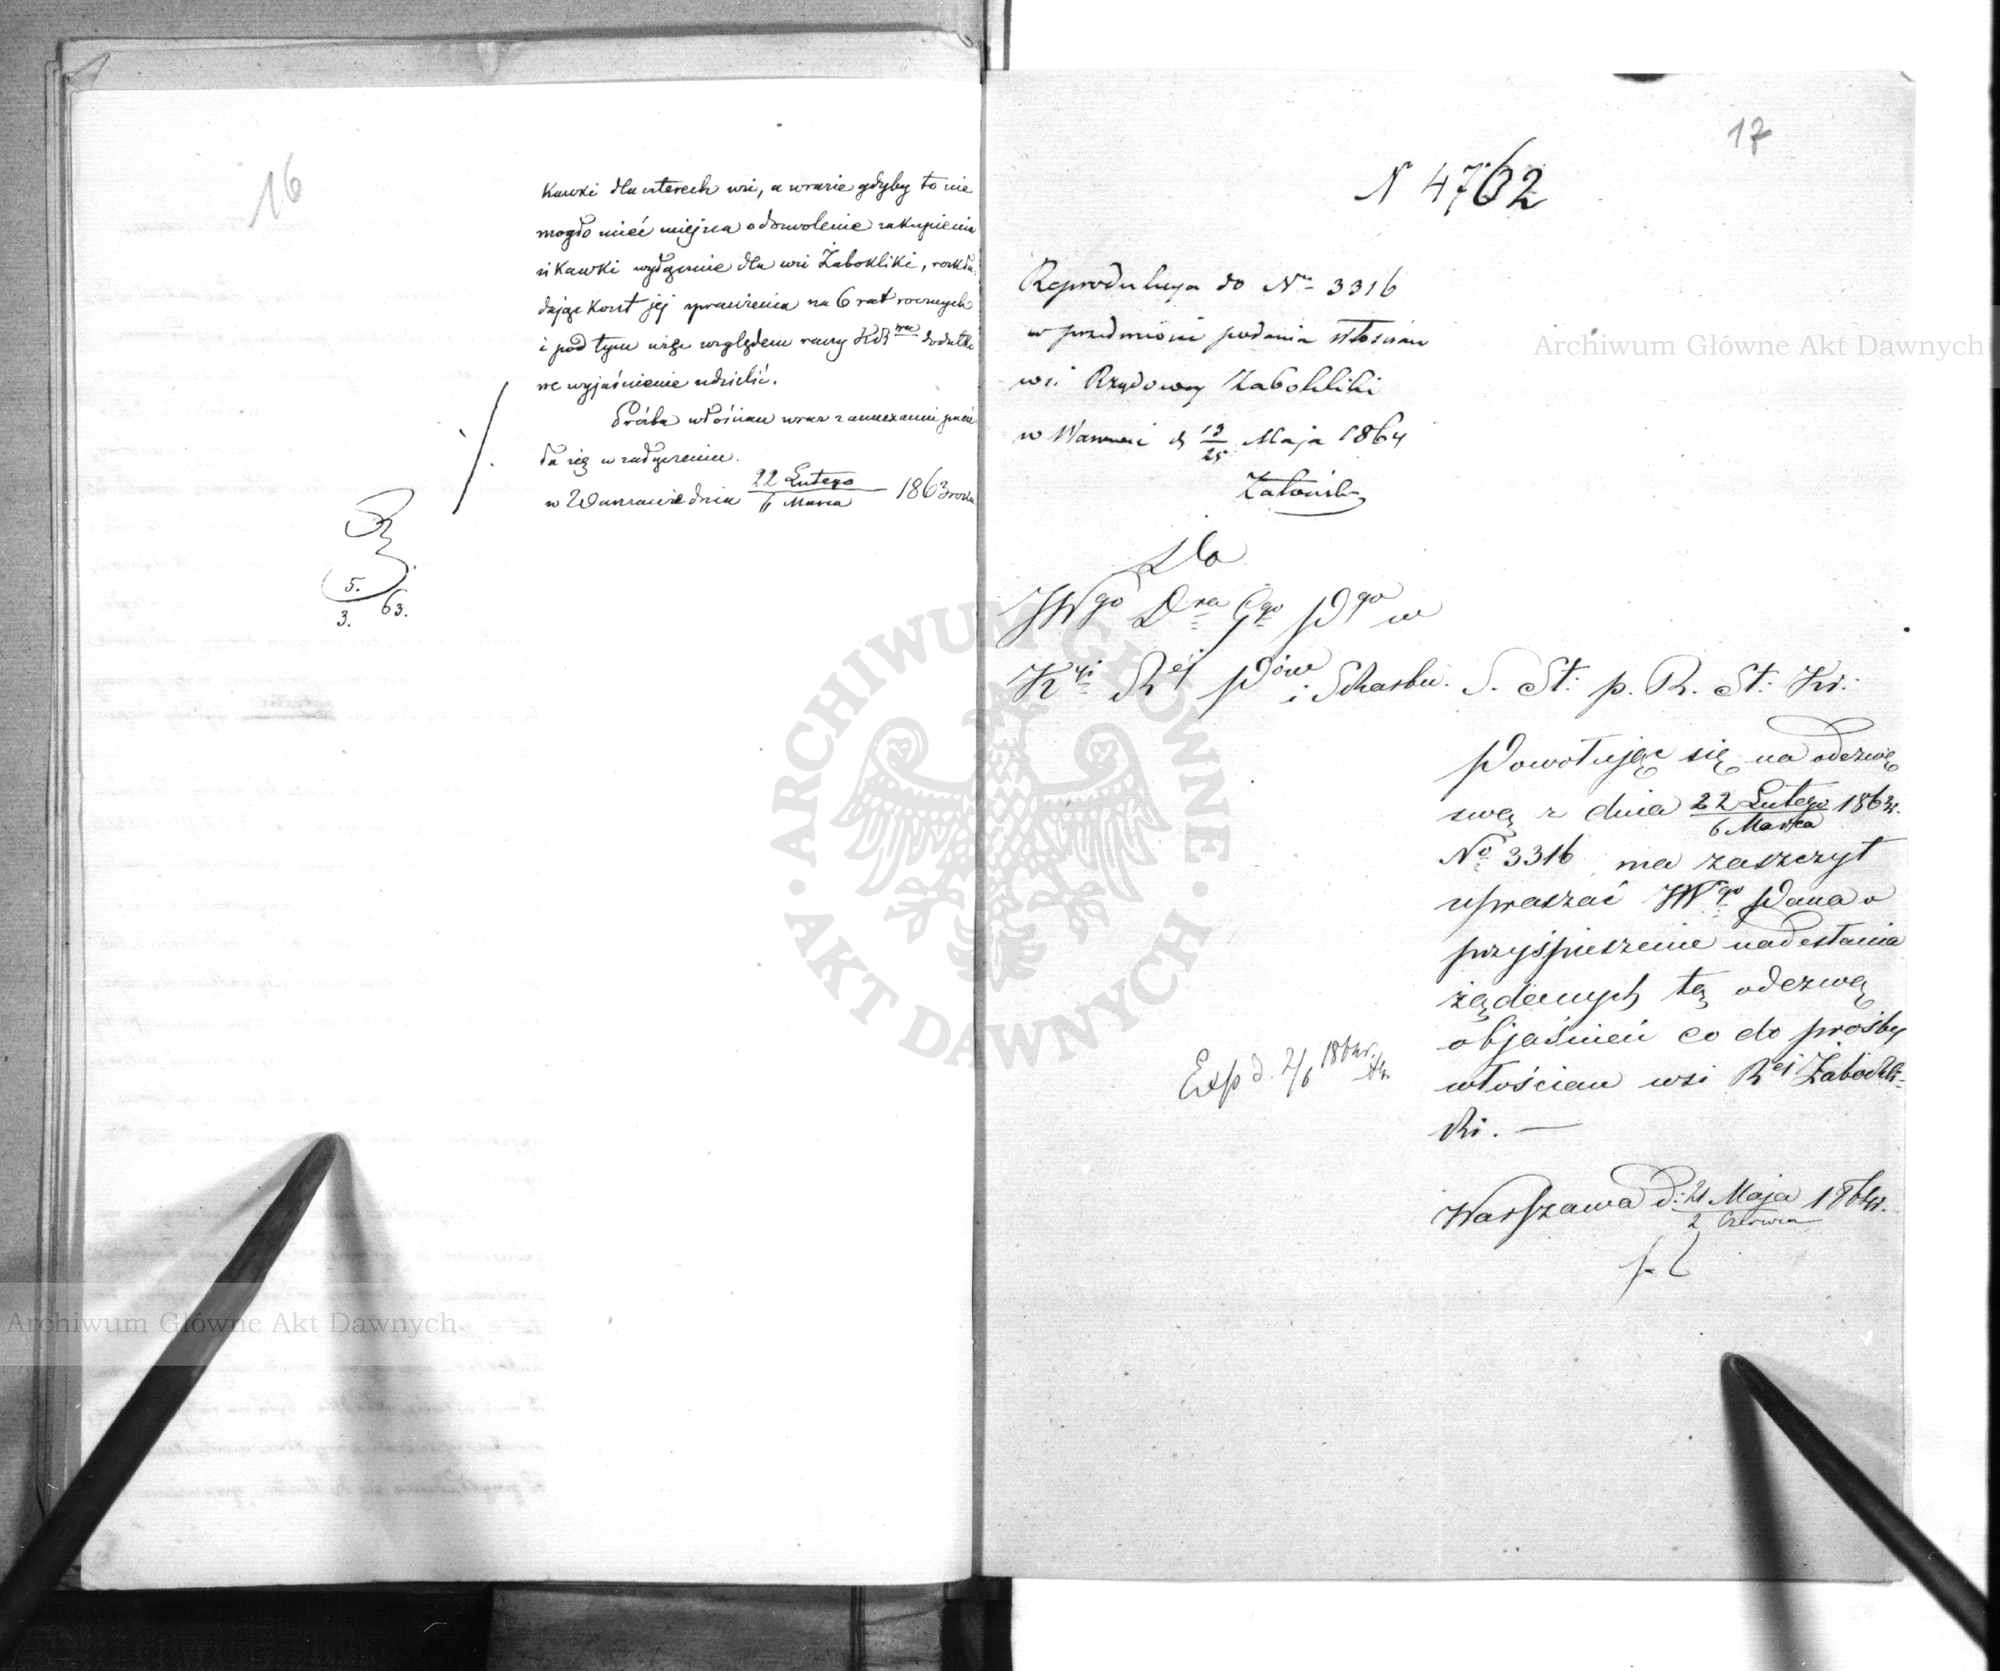 16
kawki dla czterech wsi, a w razie gdyby to nie
mogło mieć miejsca o dozwolenie zakupienia
sikawki wyłącznie dla wsi Żabokliki, rozkła-
dając koszt jej sprawienia na 6 rat rocznych
i pod tym więc względem raczy KR dodatko
we wyjaśnienie udzielić.
Prośba włościan wraz z annexami
da się w załączeniu.
w Warszawie dnia 22 Lutego / 6 Marca 1863 roku
5.
3. 63.
17
N 4762
Reprodukcya do Nru 3316
w przedmiocie podania włościan
wsi Rządowey Żabokliki
w Warszawie d 13/25 Maja 1864
Do
JWgo Dra Ggo Pgo w
Kyi Rej Pów i Skarbu. S. St: p. R. St: Kr:
Powołując się na odezwę
swą z dnia 22 Lutego / 6 Marca 1863 r.
No 3316 ma zaszczyt
upraszać JWgo Pana o
przyśpieszenie nadesłania
żądanych tą odezwą
objaśnień co do prośby
włościan wsi Rej Żabokli-
ki. —
Exp d. 2/6 1864 r.
Warszawa d: 21 Maja / 2 Czerwca 1864 r.
Archiwum Główne Akt Dawnych
ARCHIWUM GŁÓWNE · AKT DAWNYCH ·
Archiwum Główne Akt Dawnych